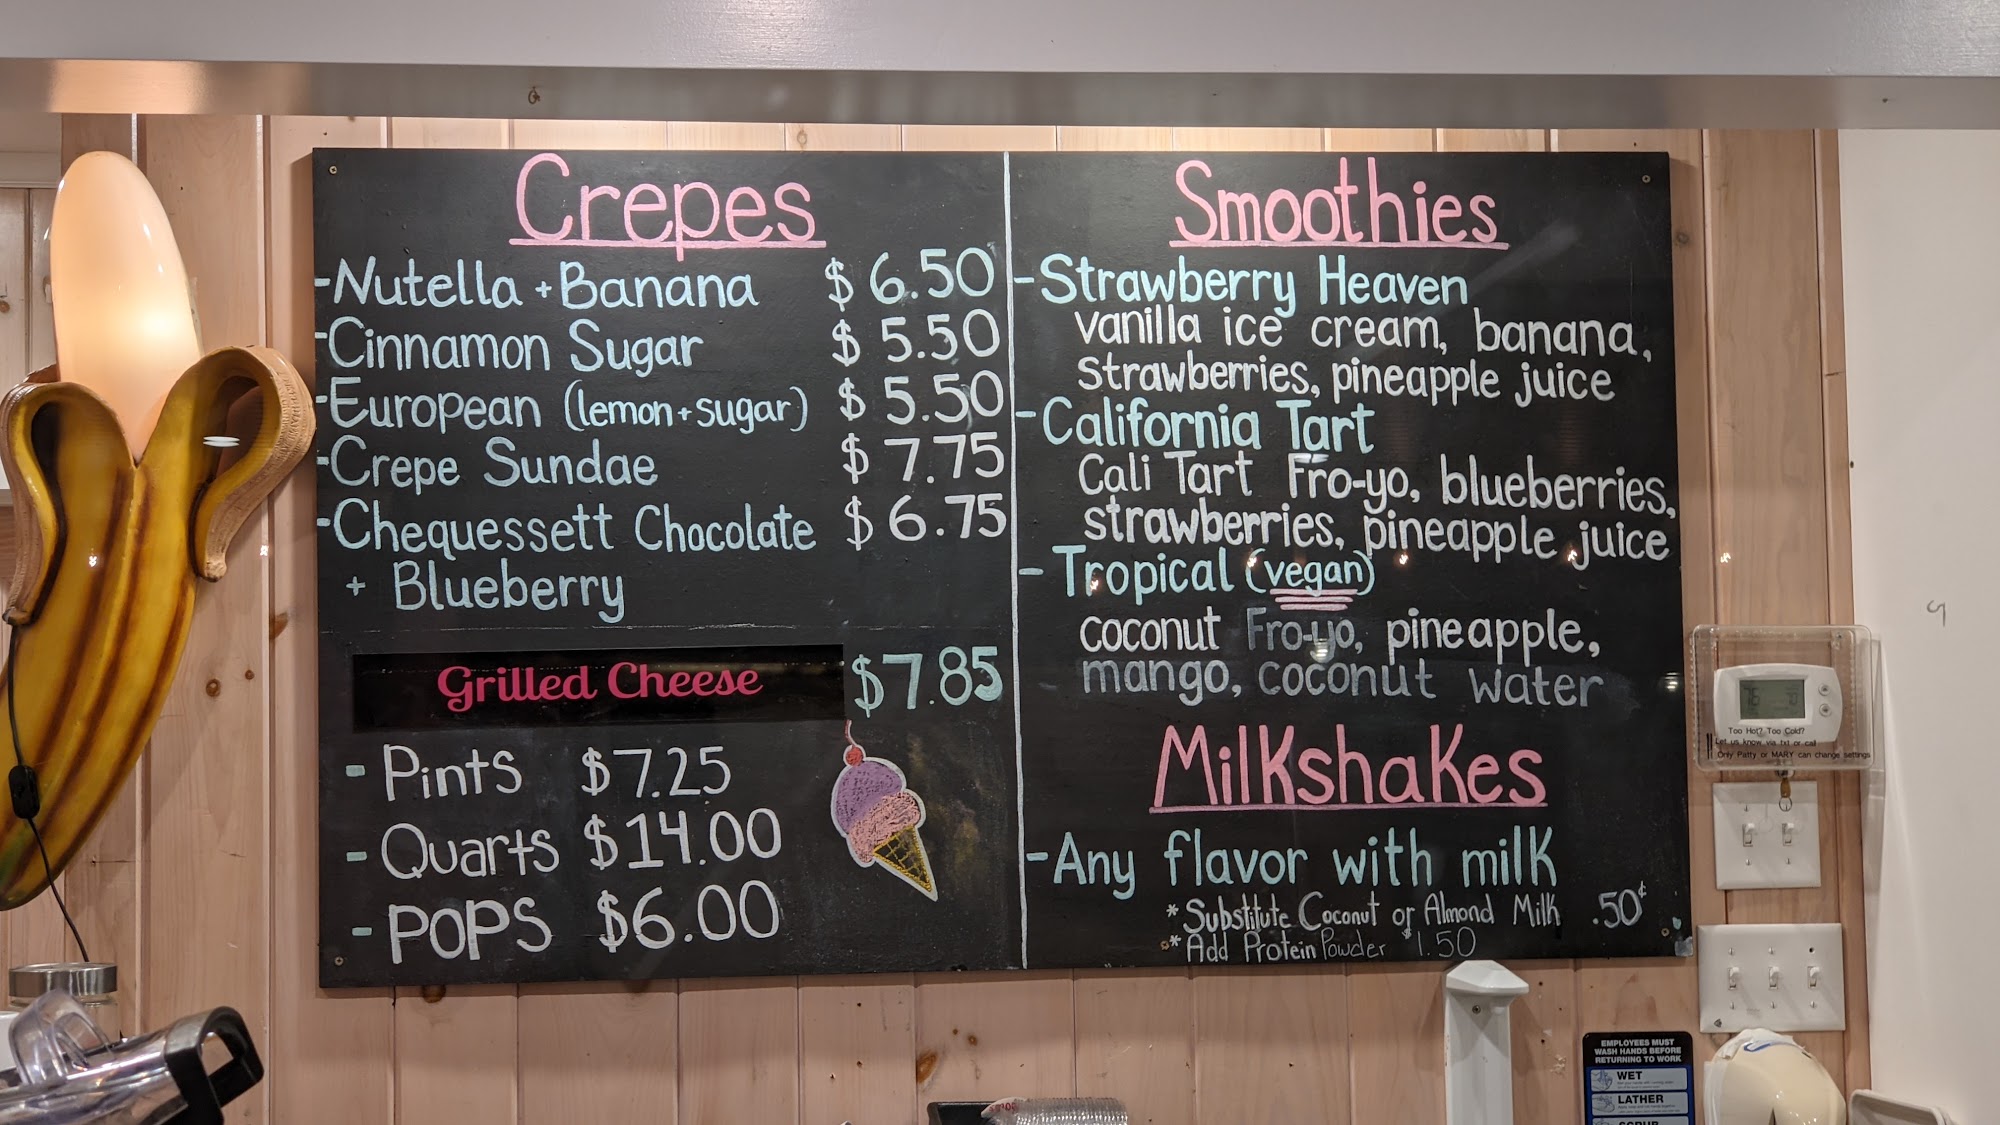 Crepes
-Nutella + Banana $ 6.50
-Cinnamon Sugar $ 5.50
-European (lemon + sugar) $ 5.50
-Crepe Sundae $ 7.75
-Chequessett Chocolate $ 6.75
+ Blueberry
Grilled Cheese $7.85
- Pints $7.25
- Quarts $14.00
- POPS $6.00
Smoothies
-Strawberry Heaven
vanilla ice cream, banana,
strawberries, pineapple juice
-California Tart
Cali Tart Fro-yo, blueberries,
strawberries, pineapple juice
- Tropical (vegan)
coconut Fro-yo, pineapple,
mango, coconut water
Milkshakes
-Any flavor with milk
* Substitute Coconut or Almond Milk .50¢
* Add Protein Powder $1.50
Too Hot? Too Cold?
Let us know via txt or call
Only Patty or MARY can change settings
EMPLOYEES MUST
WASH HANDS BEFORE
RETURNING TO WORK
WET
LATHER